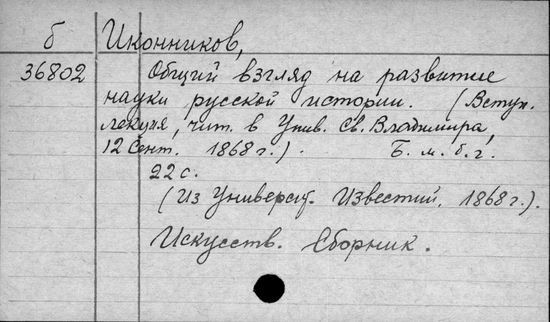 б Иконников,
36802 Общий взгляд на развитие
науки русской истории. (Вступ.
лекция, чит. в Унив. Св. Владимира,
12 Сент. 1868 г.). Б. м. б. г.
22 с.
(Из Университ. Известий. 1868 г.).
Искусств. Сборник.